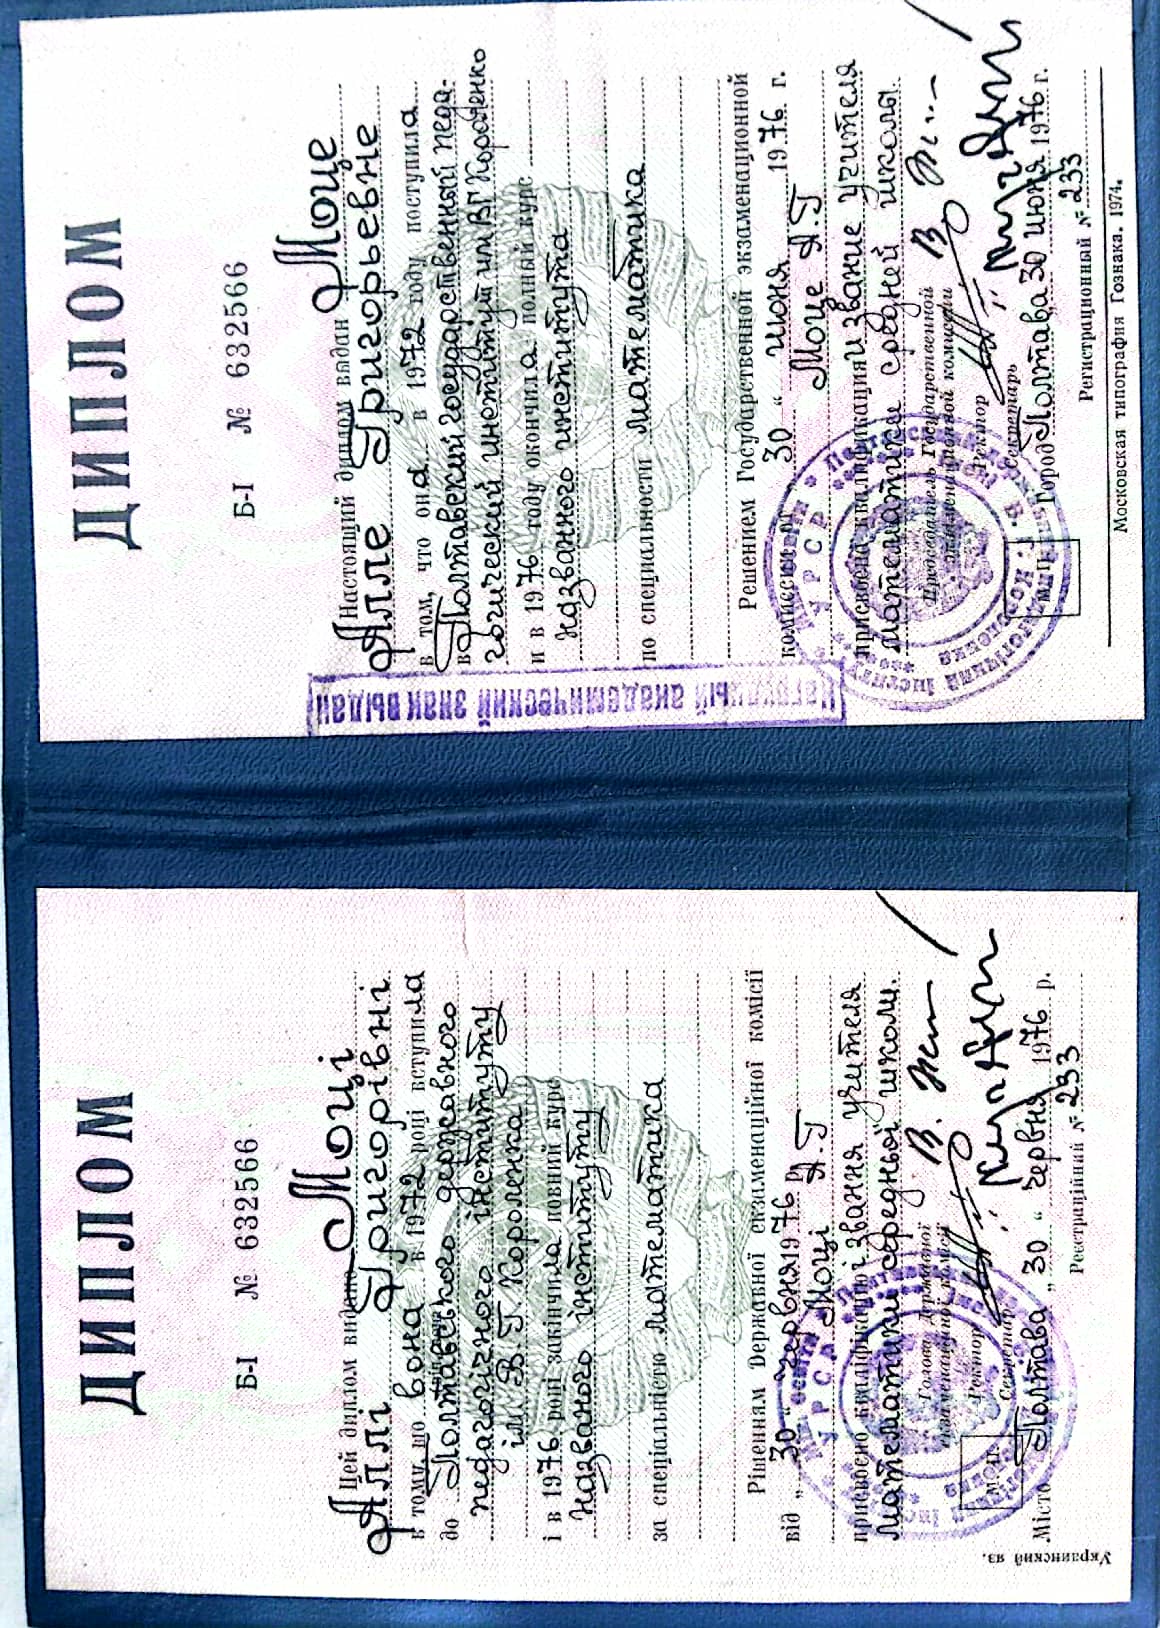 ДИПЛОМ
Б-I № 632566
Цей диплом видано Моці
Аллі Григорівні
в тому, що вона в 1972 році вступила
до Полтавського державного
педагогічного інституту
ім. В. Г. Короленка
і в 1976 році закінчила повний курс
названого інституту
за спеціальністю математика
Рішенням Державної екзаменаційної комісії
від „30“ червня 1976 р.
Моці А. Г
присвоєно кваліфікацію і звання учителя
математики середньої школи.
Голова Державної
екзаменаційної комісії
Ректор
Секретар
Місто Полтава „30“ червня 1976 р.
Реєстраційний № 233
М. П.
УРСР
Украинский яз.
ДИПЛОМ
Б-I № 632566
Настоящий диплом выдан Моце
Алле Григорьевне
в том, что она в 1972 году поступила
в Полтавский государственный педа-
гогический институт им В Г Короленко
и в 1976 году окончила полный курс
названного института
по специальности математика
Решением Государственной экзаменационной
комиссии 30 “ июня 1976 г.
Моце А. Г
присвоена квалификация и звание учителя
математики средней школы.
Председатель Государственной
экзаменационной комиссии
Ректор
Секретарь
Город Полтава 30 июня 1976 г.
Регистрационный № 233
М. П.
УРСР
Московская типография Гознака. 1974.
Нагрудный академический знак выдан